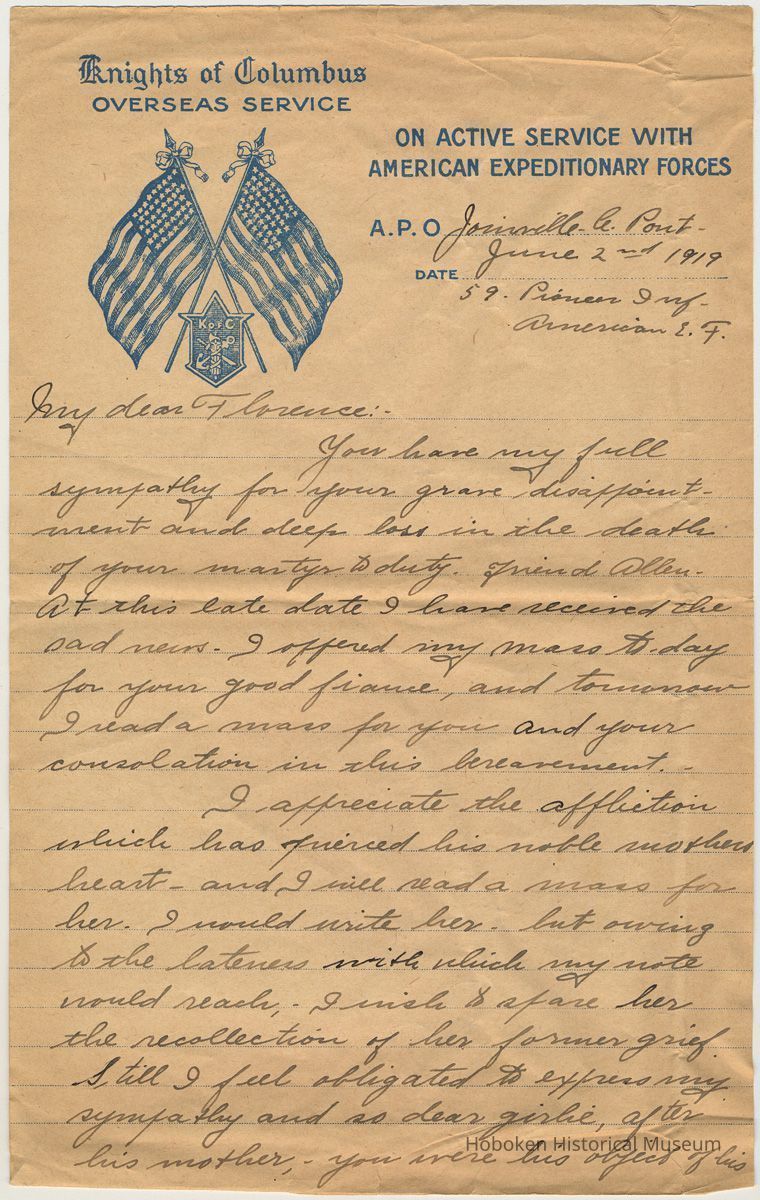 Knights of Columbus
OVERSEAS SERVICE
ON ACTIVE SERVICE WITH
AMERICAN EXPEDITIONARY FORCES
A.P.O. Joinville-le Pont-
DATE June 2nd 1919
59. Pioneer Inf-
American E. F.
K of C
My dear Florence:-
You have my full
sympathy for your grave disappoint-
ment and deep loss in the death
of your martyr to duty. friend Allen.
At this late date I have received the
sad news. I offered my mass to-day
for your good fiance, and tomorrow
I read a mass for you and your
consolation in this bereavement.-
I appreciate the affliction
which has pierced his noble mothers
heart - and I will read a mass for
her. I would write her. but owing
to the lateness with which my note
would reach,- I wish to spare her
the recollection of her former grief.
Still I feel obligated to express my
sympathy and so dear girlie, after
his mother,- you were the object of his
Hoboken Historical Museum